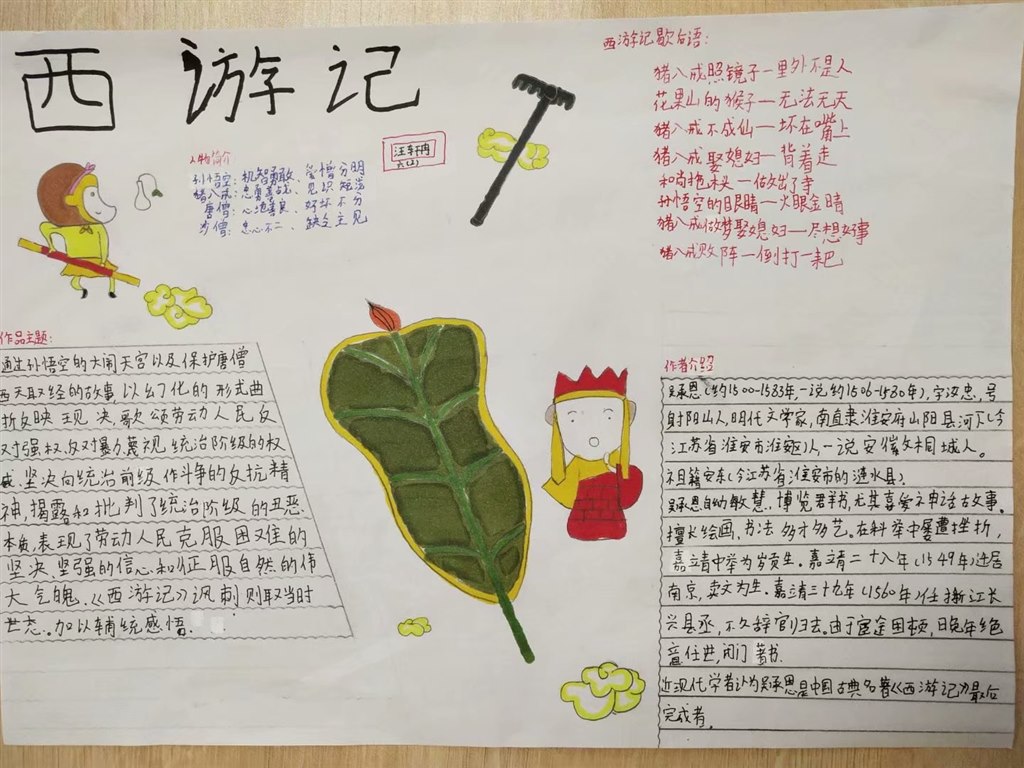 西游记
汪轩冉
六(2)
人物简介
孙悟空:机智勇敢、爱憎分明
猪八戒:忠勇善战、见识短浅
唐僧:心地善良、好坏不分
沙僧:忠心不二、缺乏主见
西游记歇后语:
猪八戒照镜子一里外不是人
花果山的猴子一无法无天
猪八戒不成仙一坏在嘴上
猪八戒娶媳妇一背着走
和尚拖木头一做出了寺
孙悟空的眼睛一火眼金睛
猪八戒做梦娶媳妇一尽想好事
猪八戒败阵一倒打一耙
作品主题:
通过孙悟空的大闹天宫以及保护唐僧
西天取经的故事以幻化的形式曲
折反映现决歌颂劳动人民反
对强权、反对暴力蔑视统治阶级的权
威.坚决向统治前级作斗争的反抗精
神,揭露和批判了统治阶级的丑恶
本质,表现了劳动人民克服困难的
坚决、坚强的信心和征服自然的伟
大气魄.《西游记》讽刺则取当时
世态。加以辅统感悟.
作者介绍
吴承恩(约1500-1583年,一说约1506-1580年),字汝忠,号
射阳山人,明代文学家,南直隶淮安府山阳县河下(今
江苏省淮安市淮安区)人一说安徽桐城人。
祖籍安东(今江苏省淮安市的涟水县)
吴承恩自幼敏慧,博览群书,尤其喜爱神话古故事。
擅长绘画,书法多才多艺。在科举中屡遭挫折,
嘉靖中举为岁贡生。嘉靖二十八年(1549年)迁居
南京,卖文为生.嘉靖三十九年(1560年)任浙江长
兴县丞,不久辞官归去。由于宦途困顿,晚年绝
意任进,闭门著书.
近现代学者认为吴承恩是中国古典名著《西游记》最后
完成者.